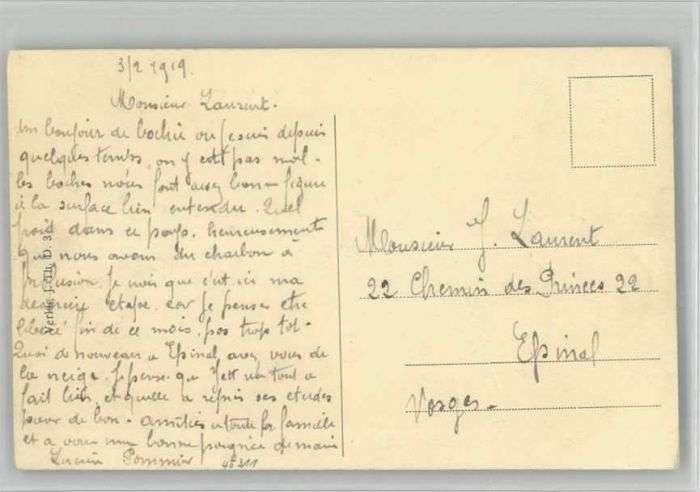 3/2 1919.
Monsieur Laurent.
un bonjour de bochie ou je suis depuis
quelques temps, on y est pas mal.
les boches nous font assez bonne figure
à la surface bien entendu. Quel
froid dans ce pays. heureusement
que nous avons du charbon à
profusion. Je crois que c'est ici ma
dernière etape. car je pense etre
libéré fin de ce mois. pas trop tôt.
Quoi de nouveau a Epinal avez vous de
la neige. Je pense que est un tout a
fait bien et quelle a repris ses etudes
pour de bon. amitiés a toute la famille
et a vous une bonne poignée de main
Lucien Pommier
Monsieur J. Laurent
22 Chemin des Princes 22
Epinal
Vosges.